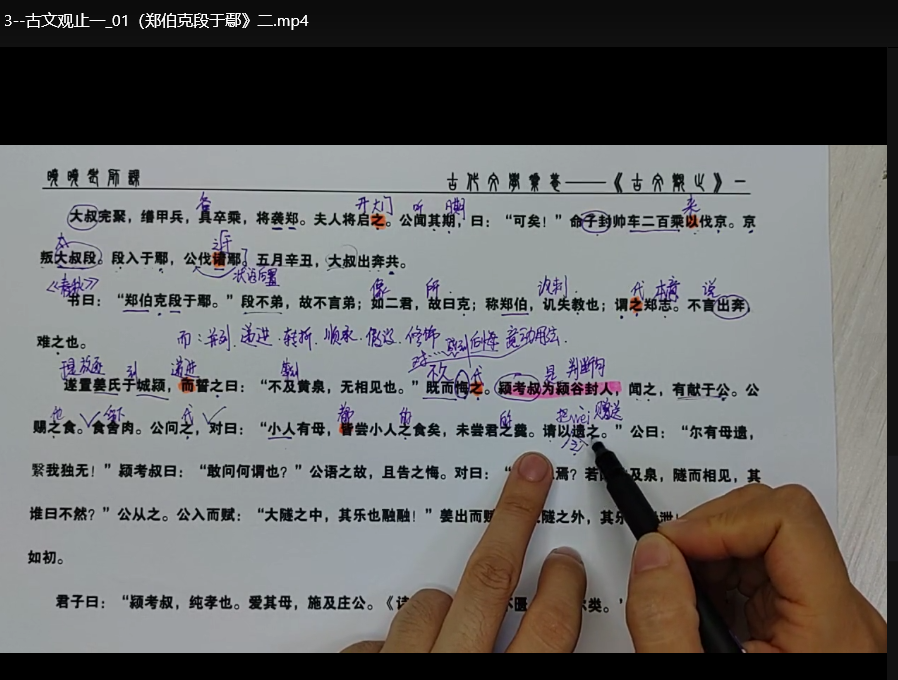 3--古文观止一_01《郑伯克段于鄢》二.mp4
晚晚老师课
古代文学常卷——《古文观止》一
大叔完聚，缮甲兵，具卒乘，将袭郑。夫人将启之。公闻其期，曰：“可矣！”命子封帅车二百乘以伐京。京
叛大叔段。段入于鄢，公伐诸鄢。五月辛丑，大叔出奔共。
状语后置
《春秋》
书曰：“郑伯克段于鄢。”段不弟，故不言弟；如二君，故曰克；称郑伯，讥失教也；谓之郑志。不言出奔，
难之也。
而：并列 递进 转折 顺承 假设 修饰
判断句
遂置姜氏于城颍，而誓之曰：“不及黄泉，无相见也。”既而悔之。颍考叔为颍谷封人，闻之，有献于公。公
赐之食。食舍肉。公问之，对曰：“小人有母，皆尝小人之食矣，未尝君之羹。请以遗之。”公曰：“尔有母遗，
繄我独无！”颍考叔曰：“敢问何谓也？”公语之故，且告之悔。对曰：“ 焉？若 及泉，隧而相见，其
谁曰不然？”公从之。公入而赋：“大隧之中，其乐也融融！”姜出而赋 隧之外，其乐 泄
如初。
君子曰：“颍考叔，纯孝也。爱其母，施及庄公。《诗 不匮 类。’